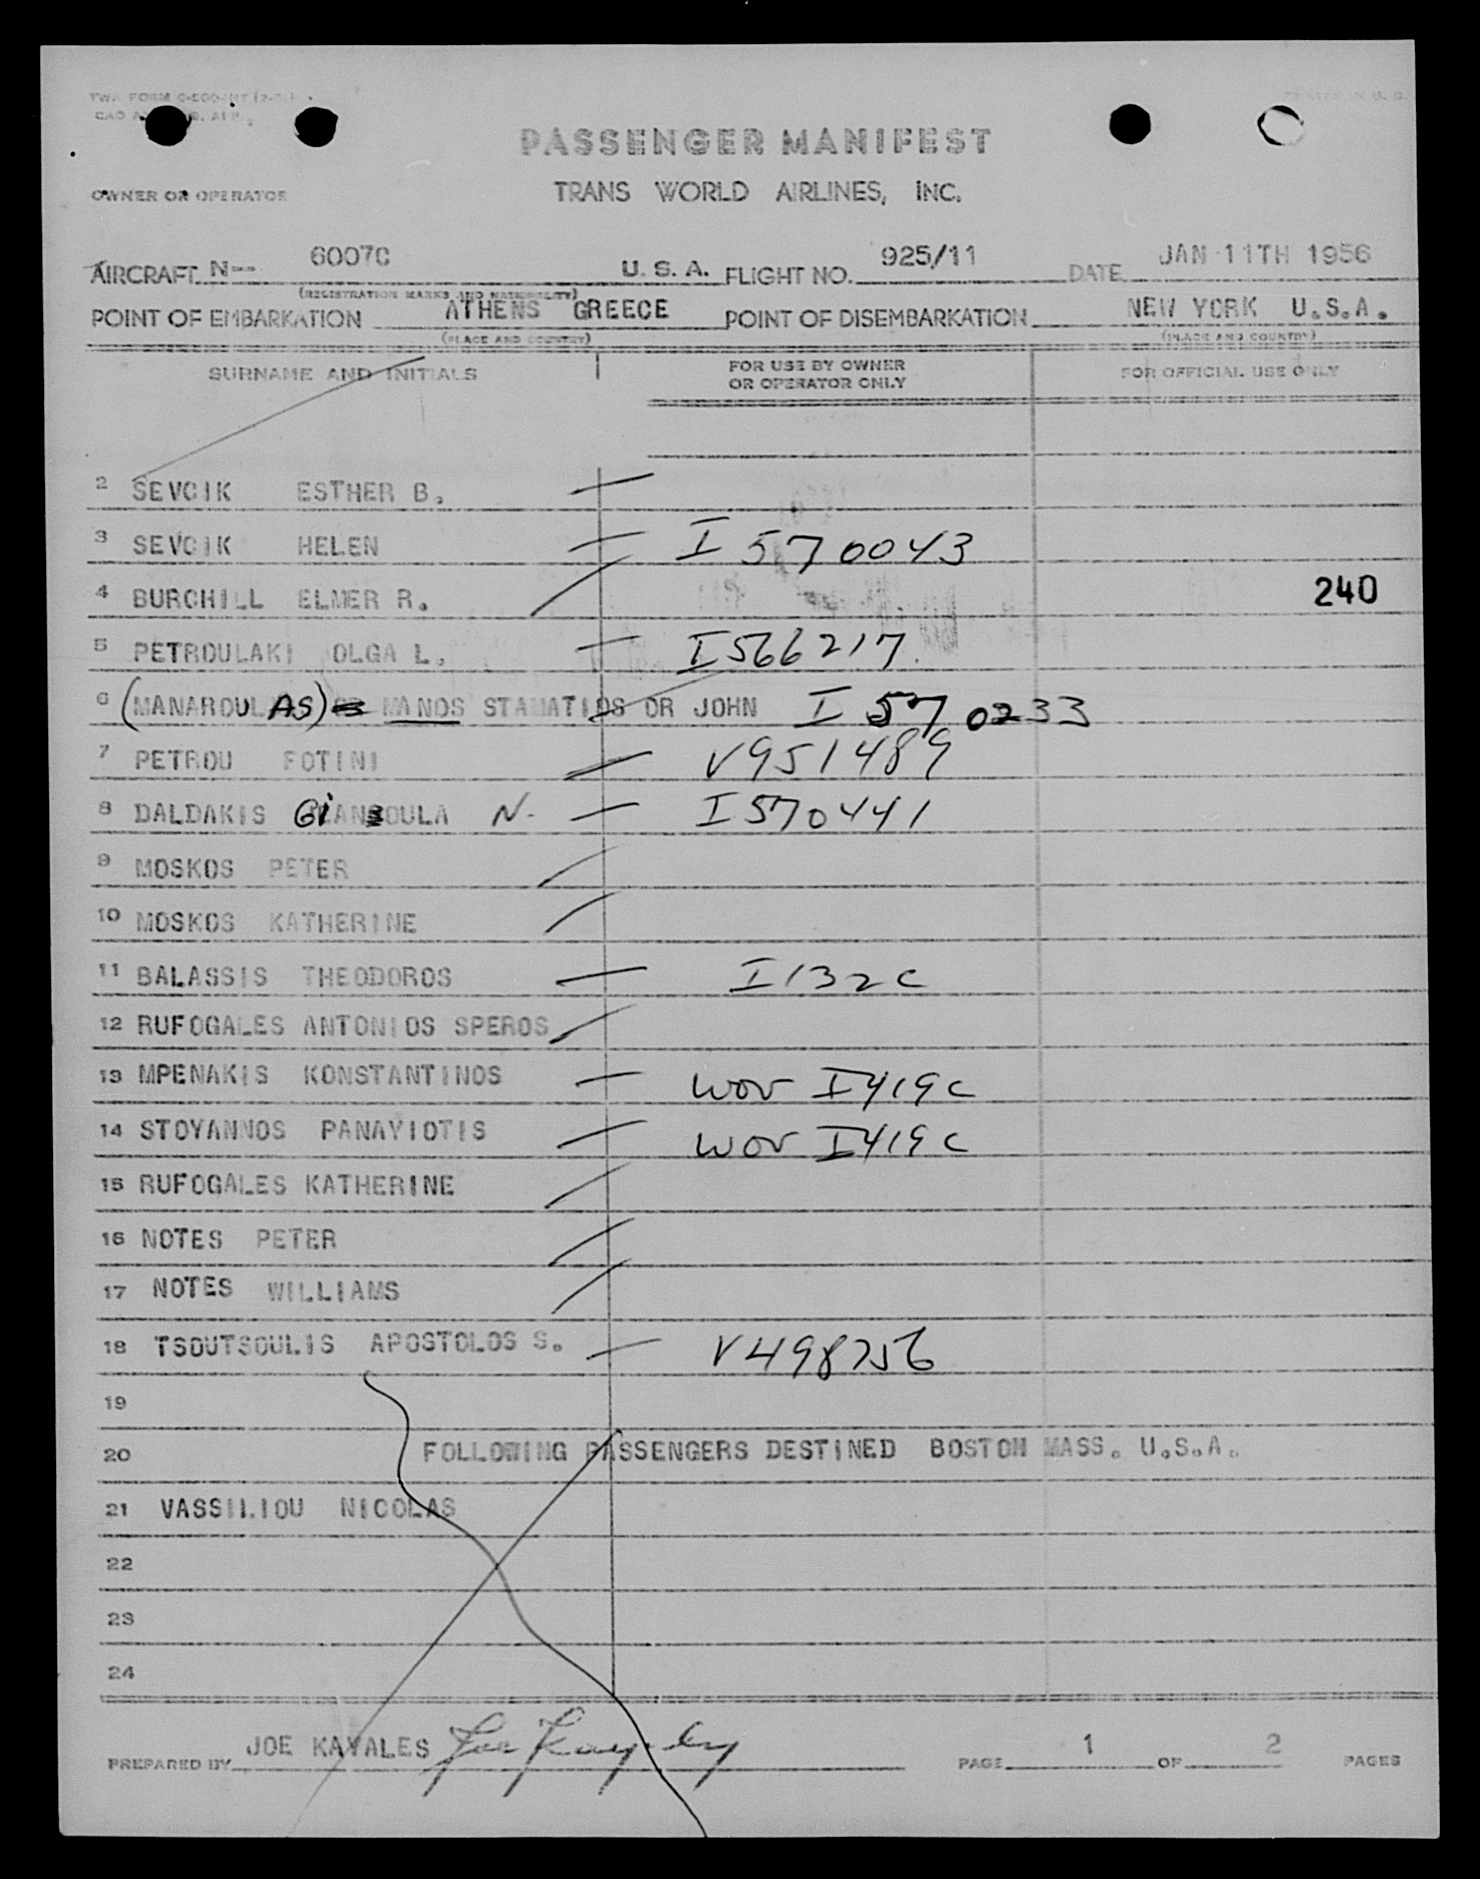 TWA FORM
PASSENGER MANIFEST
OWNER OR OPERATOR TRANS WORLD AIRLINES, INC.
AIRCRAFT N-- 6007C U.S.A. FLIGHT NO. 925/11 DATE JAN 11TH 1956
(REGISTRATION MARKS AND NATIONALITY)
POINT OF EMBARKATION ATHENS GREECE POINT OF DISEMBARKATION NEW YORK U.S.A.
(PLACE AND COUNTRY) (PLACE AND COUNTRY)
SURNAME AND INITIALS FOR USE BY OWNER OR OPERATOR ONLY FOR OFFICIAL USE ONLY
2 SEVCIK ESTHER B.
3 SEVCIK HELEN I 570043
4 BURCHILL ELMER R. 240
5 PETROULAKI OLGA L. I566217
6 (MANAROULAS) MANOS STAMATIOS OR JOHN I 570233
7 PETROU FOTINI V951489
8 DALDAKIS GiANSOULA N. I570441
9 MOSKOS PETER
10 MOSKOS KATHERINE
11 BALASSIS THEODOROS I132C
12 RUFOGALES ANTONIOS SPEROS
13 MPENAKIS KONSTANTINOS WOV I419C
14 STOYANNOS PANAYIOTIS WOV I419C
15 RUFOGALES KATHERINE
16 NOTES PETER
17 NOTES WILLIAMS
18 TSOUTSOULIS APOSTOLOS S. V498756
19
20 FOLLOWING PASSENGERS DESTINED BOSTON MASS. U.S.A.
21 VASSILIOU NICOLAS
22
23
24
PREPARED BY JOE KAVALES PAGE 1 OF 2 PAGES